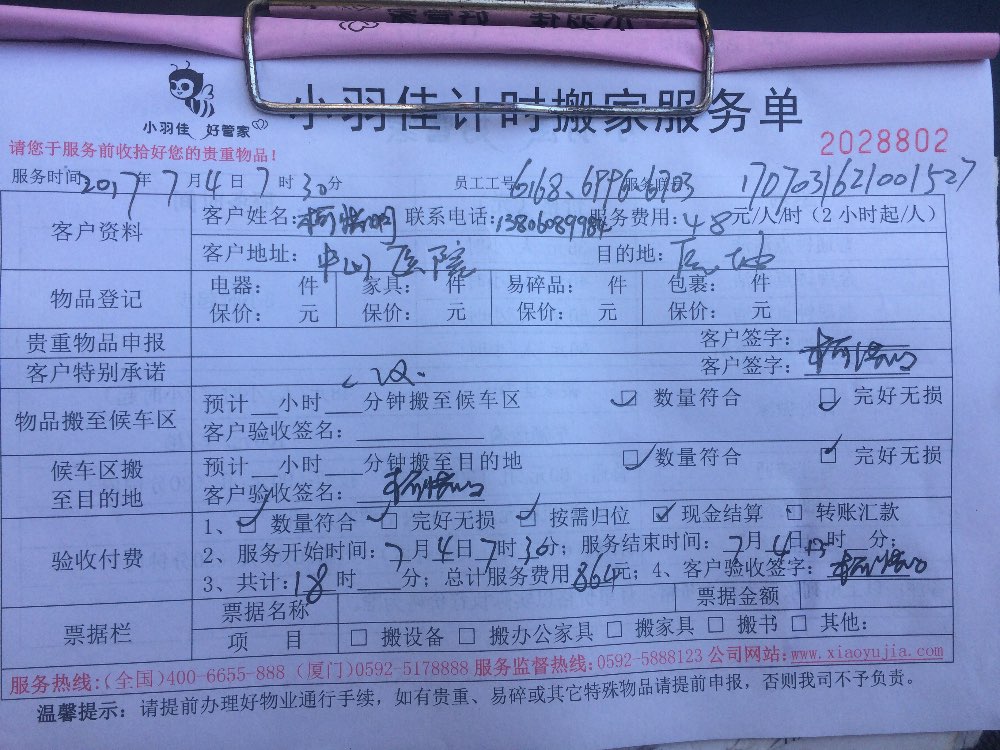 小羽佳 好管家
小羽佳计时搬家服务单
2028802
请您于服务前收拾好您的贵重物品!
服务时间 2017年 7月 4日 7时 30分 员工工号 6168、6996 6703 服务联单 1707031621001527
客户资料 客户姓名: 联系电话:13806089984 服务费用: 48元/人/时 (2 小时起/人)
客户地址: 中山医院 目的地: 原地
物品登记 电器: 件 家具: 件 易碎品: 件 包裹: 件
保价: 元 保价: 元 保价: 元 保价: 元
贵重物品申报 客户签字:
客户特别承诺 客户签字:
物品搬至候车区 预计__小时___分钟搬至候车区 ☑ 数量符合 ☑ 完好无损
客户验收签名:
候车区搬至目的地 预计__小时___分钟搬至目的地 ☑ 数量符合 ☑ 完好无损
客户验收签名:
验收付费 1、☑ 数量符合 ☑ 完好无损 ☑ 按需归位 ☑ 现金结算 □ 转账汇款
2、服务开始时间: 7月4日7时30分; 服务结束时间: 7月4日13时 分;
3、共计: 18时 分; 总计服务费用 864元; 4、客户验收签字:
票据栏 票据名称 票据金额
项 目 □ 搬设备 □ 搬办公家具 □ 搬家具 □ 搬书 □ 其他:
服务热线:(全国)400-6655-888 (厦门)0592-5178888 服务监督热线:0592-5888123 公司网站:www.xiaoyujia.com
温馨提示: 请提前办理好物业通行手续, 如有贵重、易碎或其它特殊物品请提前申报, 否则我司不予负责。